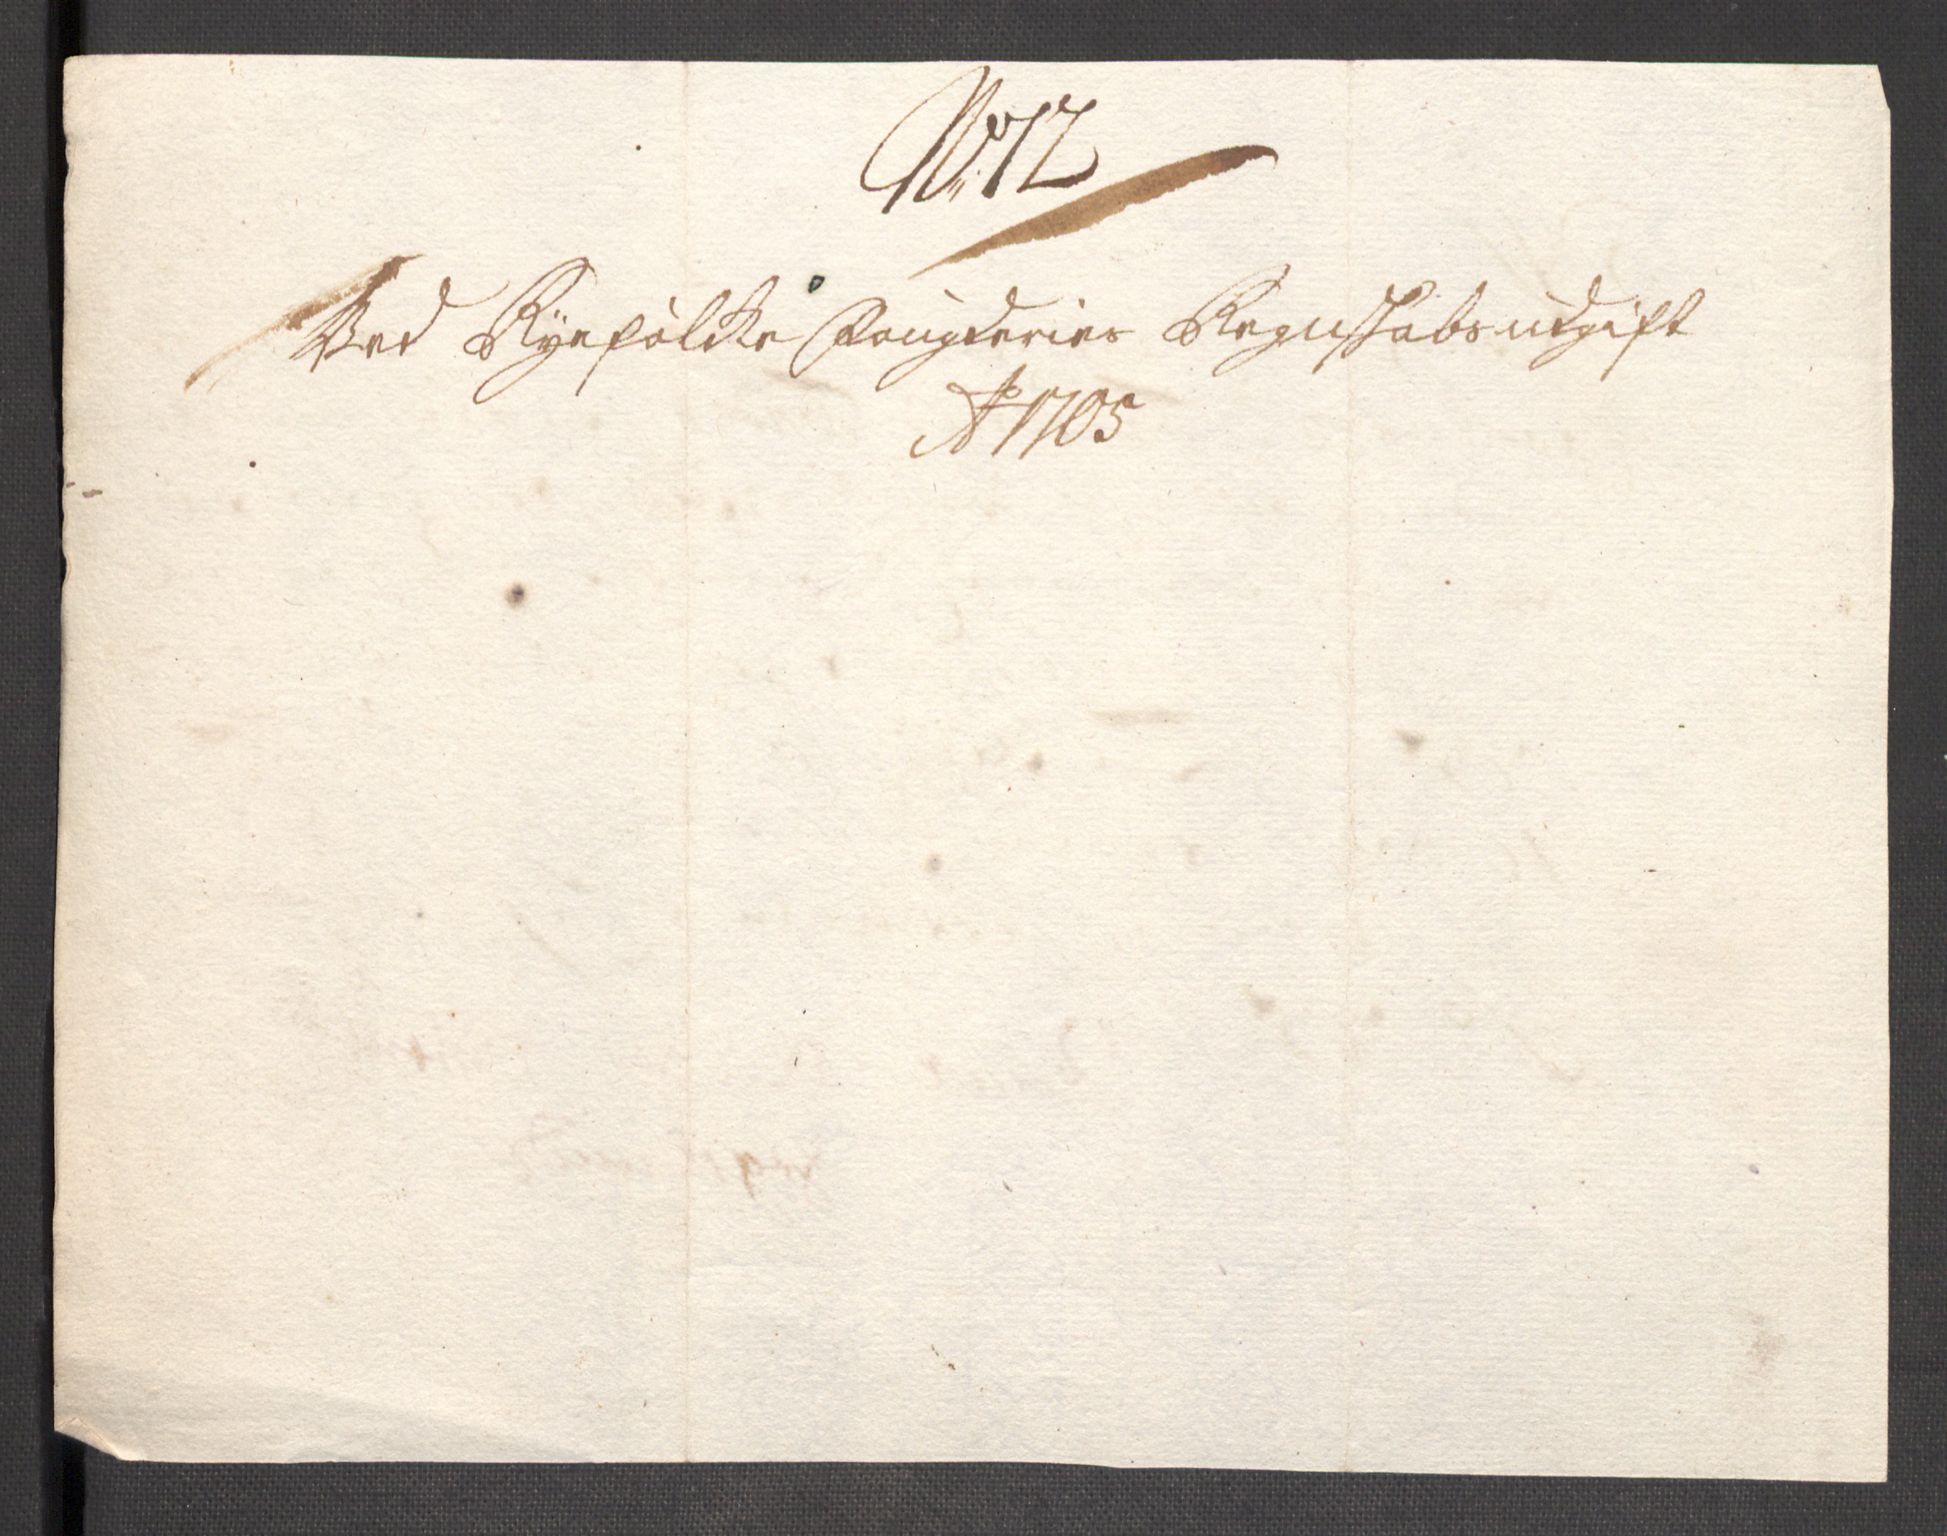 No: 12
Ved Ryefølcke Fougderies Regnskabs udgift
Ao 1705